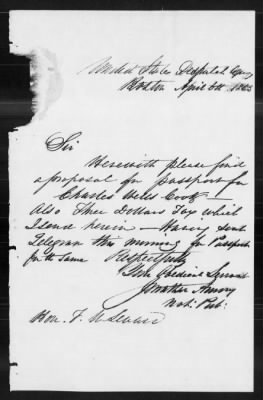 United States Despatch Agency
Boston April 6th 1863
Sir
Herewith please find
a proposal for passport for
Charles Wells Cook
Also Three Dollars Tax which
I send herein — Having sent
Telegram this morning for Passport
for the same Respectfully
Your Obedient Servant
Jonathan Amory
Not: Pub:
Hon. F. W. Seward